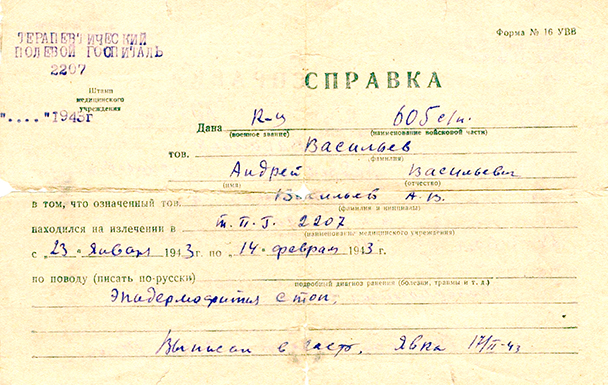 Форма № 16 УВВ
ТЕРАПЕВТИЧЕСКИЙ
ПОЛЕВОЙ ГОСПИТАЛЬ
2207
СПРАВКА
Штамп
медицинского
учреждения
"...."1943г
Дана к-ц 605 с/п.
(военное звание) (наименование войсковой части)
тов. Васильев
(фамилия)
Андрей Васильевич
(имя) (отчество)
в том, что означенный тов. Васильев А. В.
(фамилия и инициалы)
находился на излечении в т.п.г. 2207
(наименование медицинского учреждения)
с „23" Января 1943 г. по „14" февраля 1943 г.
по поводу (писать по-русски)
подробный диагноз ранения (болезни, травмы и т. д.)
Эпидермофития стоп.
Выписан в часть. Явка 17/II-43